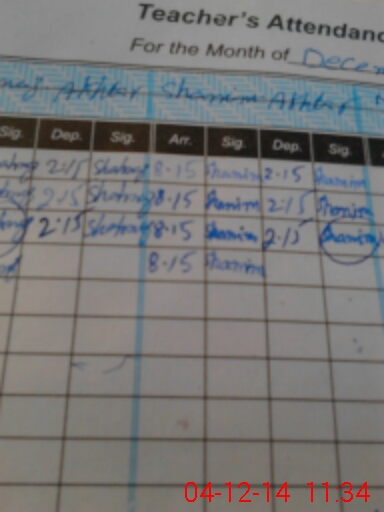 Teacher's Attendanc
For the Month of Decem
Akhtar Shamim Akhtar
Sig. Dep. Sig. Arr. Sig. Dep. Sig.
2:15 8.15 Shamim 2.15 Shamim
2:15 8.15 Shamim 2:15 Shamim
2:15 8.15 Shamim 2:15 Shamim
8.15 Shamim
04-12-14 11.34